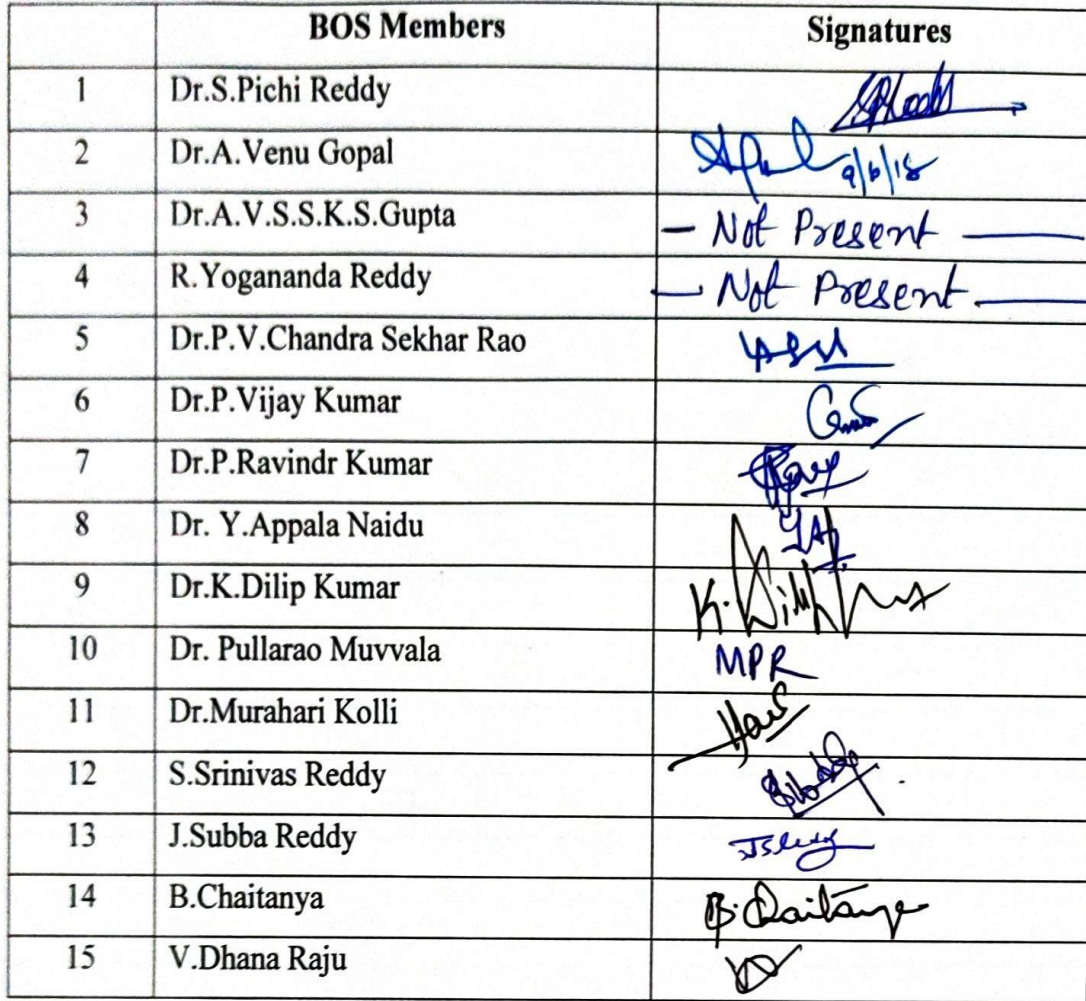 BOS Members Signatures
1 Dr.S.Pichi Reddy
2 Dr.A.Venu Gopal 9/6/18
3 Dr.A.V.S.S.K.S.Gupta - Not Present -
4 R.Yogananda Reddy - Not Present -
5 Dr.P.V.Chandra Sekhar Rao
6 Dr.P.Vijay Kumar
7 Dr.P.Ravindr Kumar
8 Dr. Y.Appala Naidu
9 Dr.K.Dilip Kumar
10 Dr. Pullarao Muvvala MPR
11 Dr.Murahari Kolli
12 S.Srinivas Reddy
13 J.Subba Reddy
14 B.Chaitanya B.Chaitanya
15 V.Dhana Raju